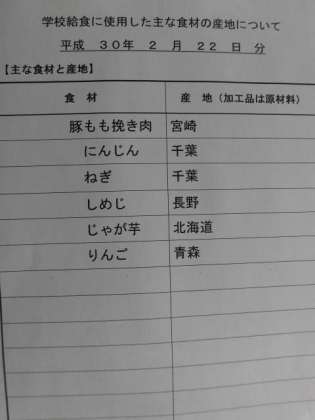 学校給食に使用した主な食材の産地について
平成 30年 2 月 22 日 分
【主な食材と産地】
食 材 産 地（加工品は原材料）
豚もも挽き肉 宮崎
にんじん 千葉
ねぎ 千葉
しめじ 長野
じゃが芋 北海道
りんご 青森